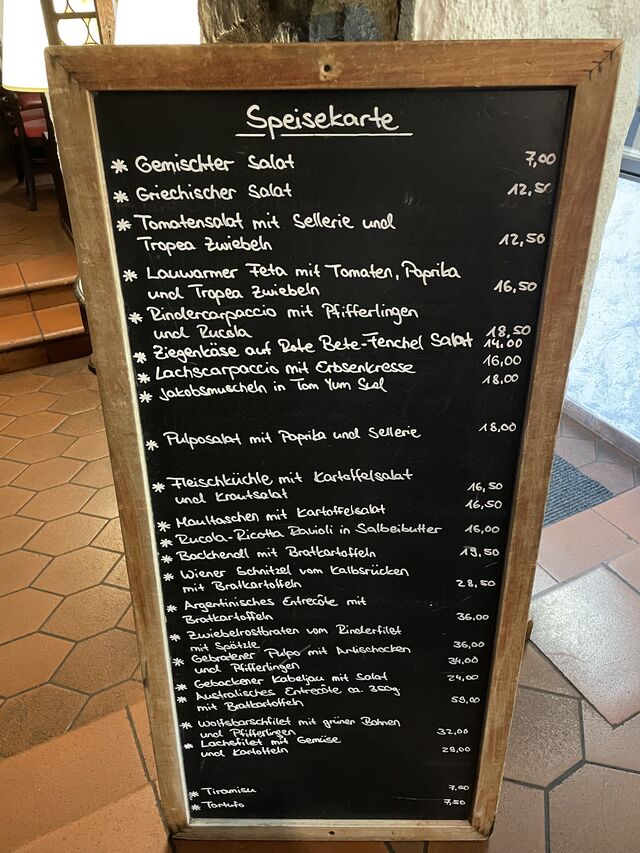 Speisekarte
* Gemischter Salat 7,00
* Griechischer Salat 12,50
* Tomatensalat mit Sellerie und
Tropea Zwiebeln 12,50
* Lauwarmer Feta mit Tomaten, Paprika
und Tropea Zwiebeln 16,50
* Rindercarpaccio mit Pfifferlingen
und Rucola 18,50
* Ziegenkäse auf Rote Bete-Fenchel Salat 14,00
* Lachscarpaccio mit Erbsenkresse 16,00
* Jakobsmuscheln in Tom Yum Sud 18,00
* Pulposalat mit Paprika und Sellerie 18,00
* Fleischküchle mit Kartoffelsalat
und Krautsalat 16,50
* Maultaschen mit Kartoffelsalat 16,50
* Rucola-Ricotta Ravioli in Salbeibutter 16,00
* Backhendl mit Bratkartoffeln 19,50
* Wiener Schnitzel vom Kalbsrücken
mit Bratkartoffeln 28,50
* Argentinisches Entrecôte mit
Bratkartoffeln 36,00
* Zwiebelrostbraten vom Rinderfilet
mit Spätzle 36,00
* Gebratener Pulpo mit Artischocken
und Pfifferlingen 34,00
* Gebackener Kabeljau mit Salat 24,00
* Australisches Entrecôte ca. 350g
mit Bratkartoffeln 59,00
* Wolfsbarschfilet mit grüner Bohnen
und Pfifferlingen 32,00
* Lachsfilet mit Gemüse
und Kartoffeln 29,00
* Tiramisu 7,50
* Tartufo 7,50